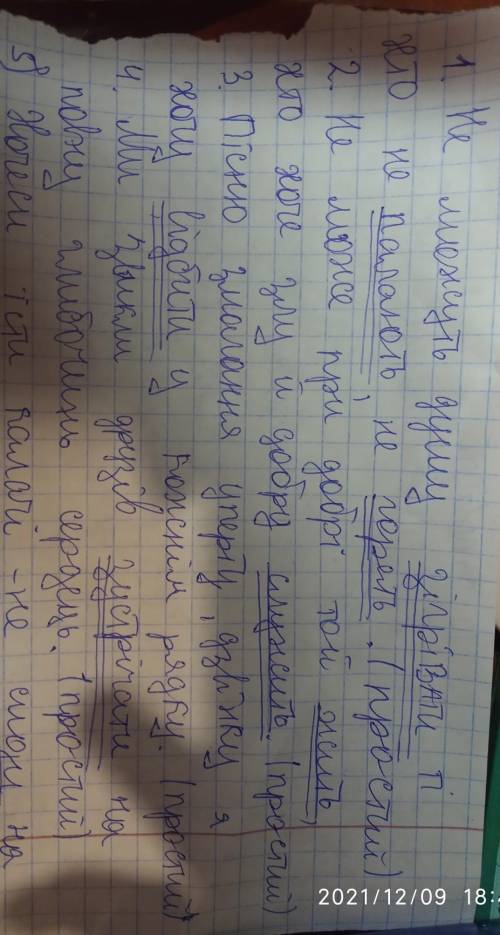 1. Не можуть душу зігрівати ті
хто не палають, не горять. (простий)
2. Не може при добрі той жить,
хто хоче злу й добру служить. (простий)
3. Пісню змагання уперту, дзвінку я
хочу відбити у кожнім рядку. (простий)
4. Ми звикли друзів зустрічати на
повну глибочінь сердець. (простий)
5) Хочеш їсти калачі - не сиди на
2021/12/09 18: